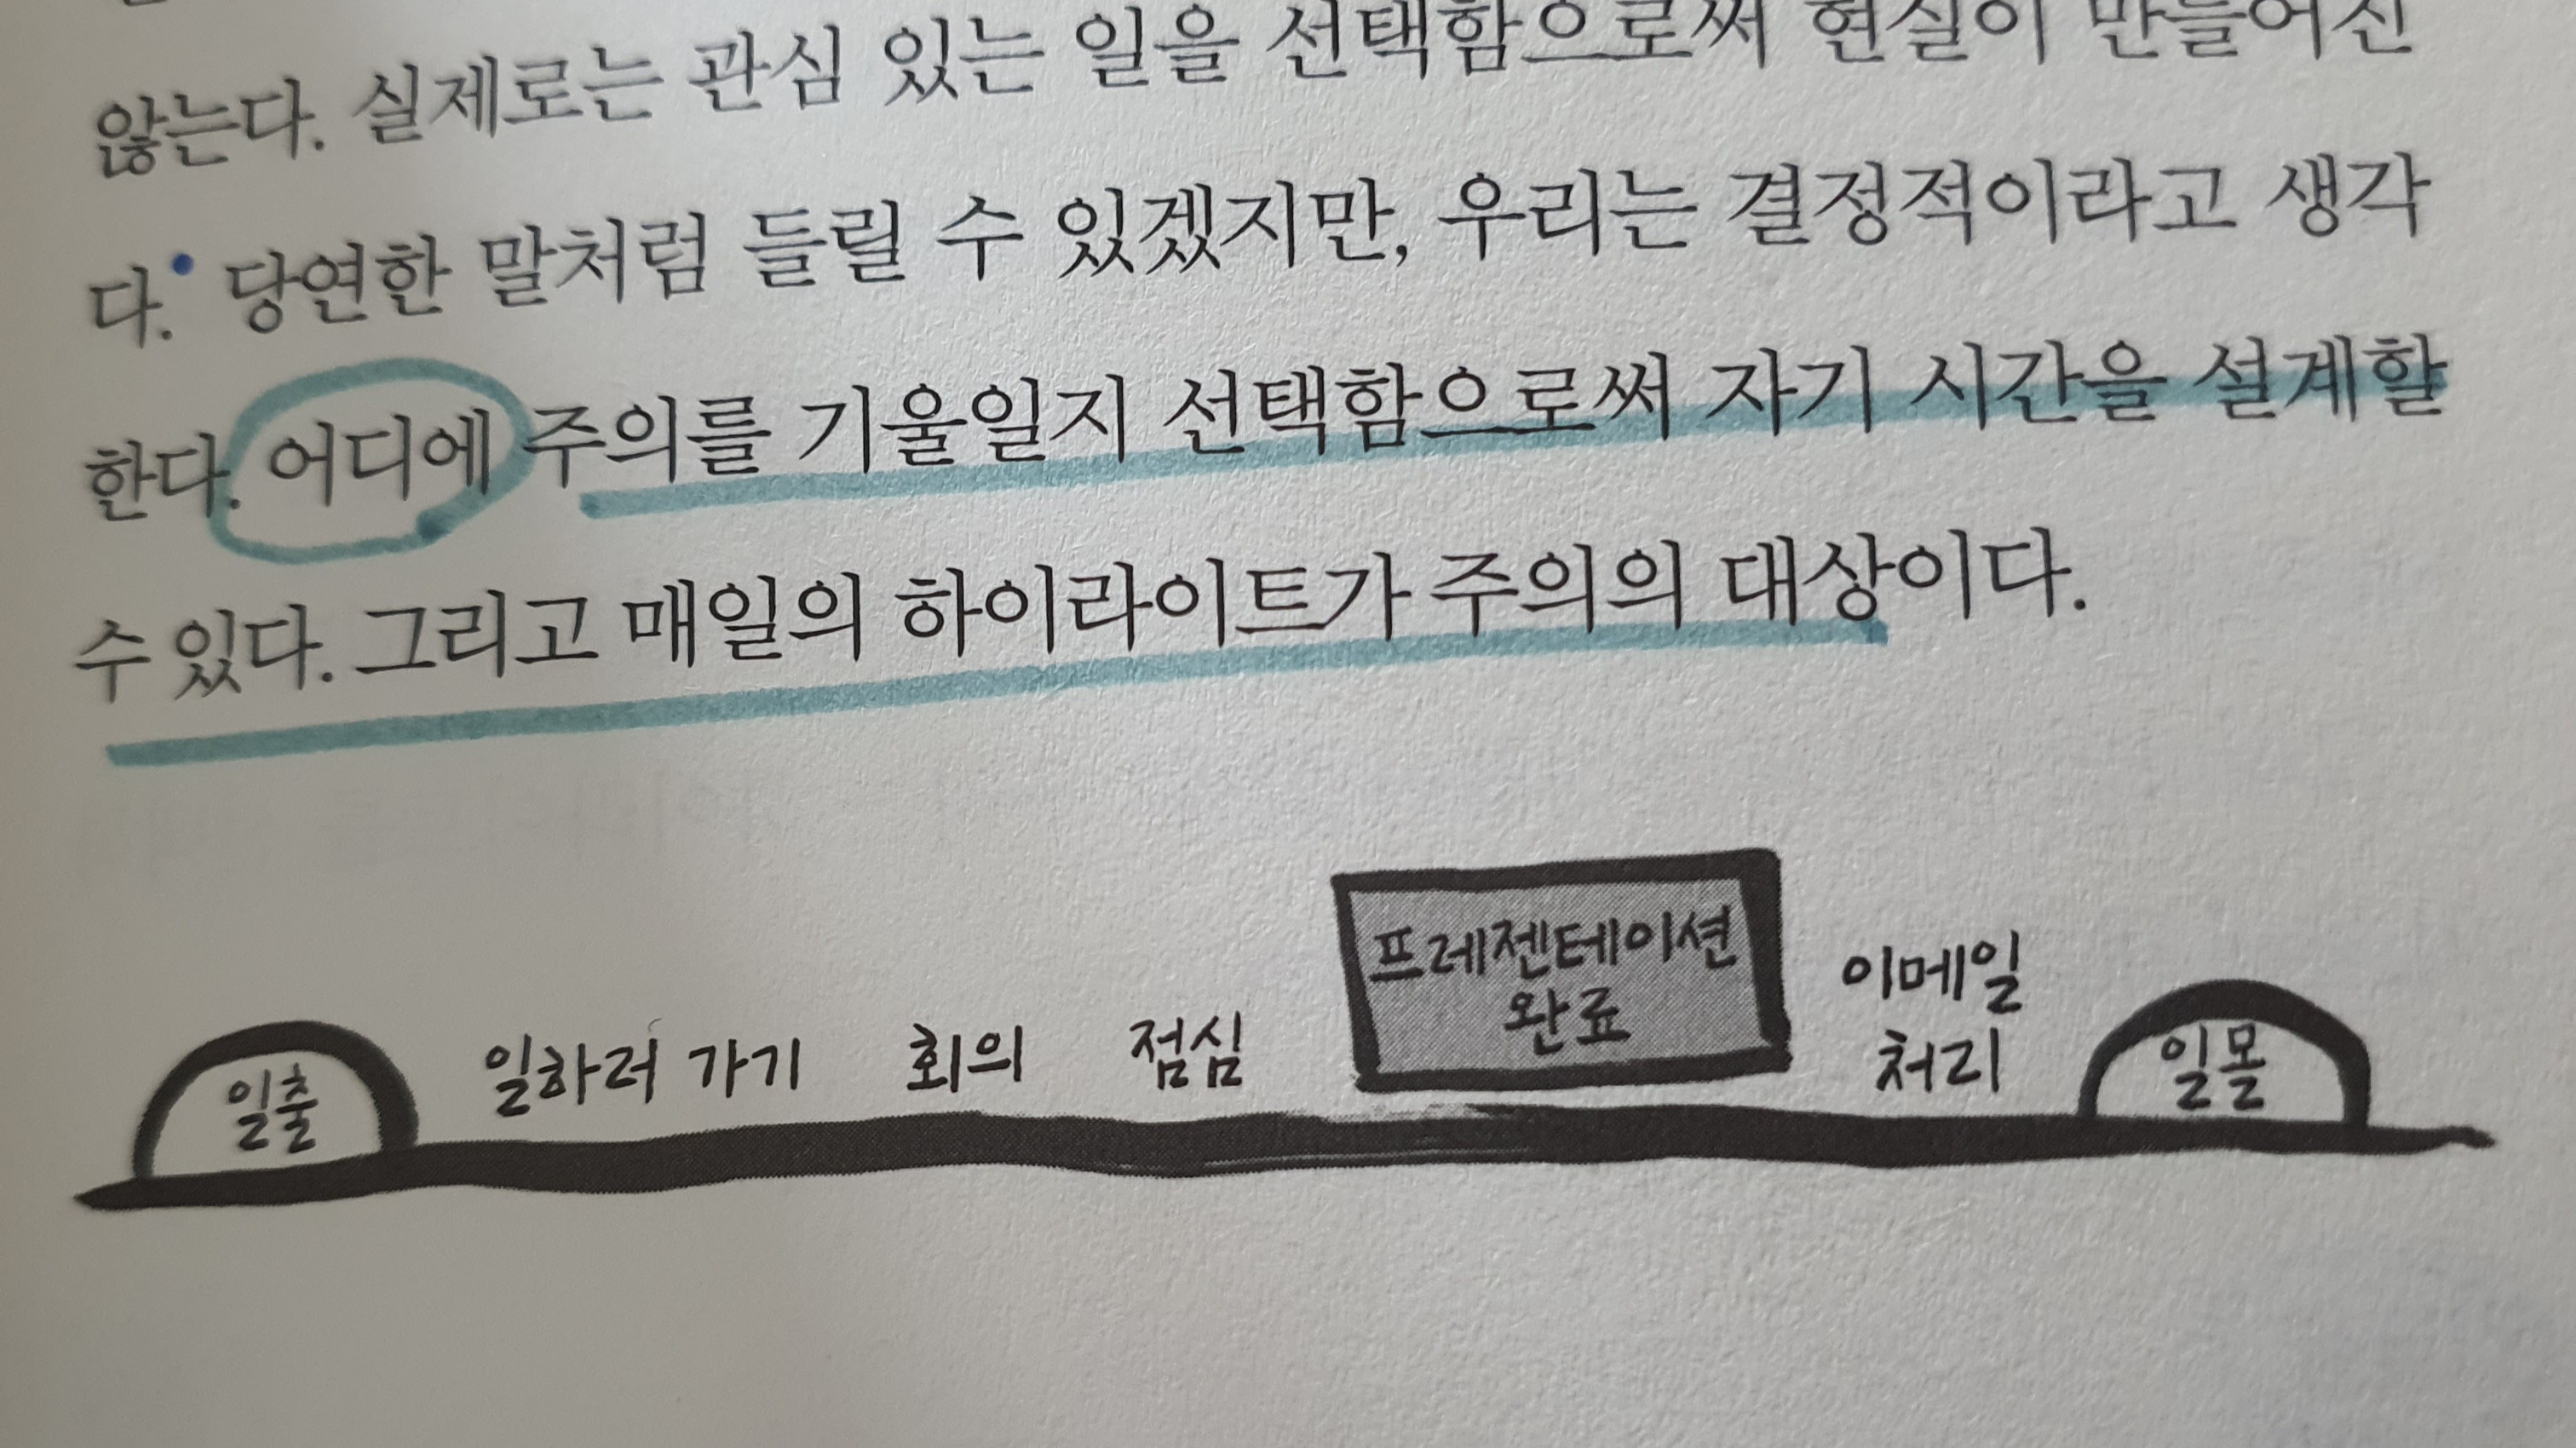 않는다. 실제로는 관심 있는 일을 선택함으로써 현실이 만들어진
다.• 당연한 말처럼 들릴 수 있겠지만, 우리는 결정적이라고 생각
한다. 어디에 주의를 기울일지 선택함으로써 자기 시간을 설계할
수 있다. 그리고 매일의 하이라이트가 주의의 대상이다.
일출
일하러 가기
회의
점심
프레젠테이션
완료
이메일
처리
일몰